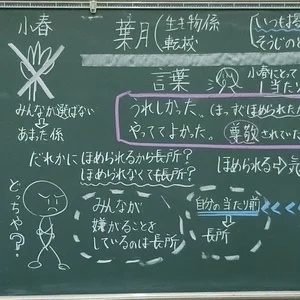 小春
葉月
生き物係
転校
いつも捨
そうじの
言葉
小春にとって
当たり
みんなが選ばない
↓
あまった係
うれしかった。(まっすぐほめられた
やっててよかった。尊敬されてい
だれかにほめられるから長所?
ほめられなくても長所?
ほめられる⇒気
どっちや?
みんなが
嫌がることを
しているのは長所
自分の当たり前
↓
長所